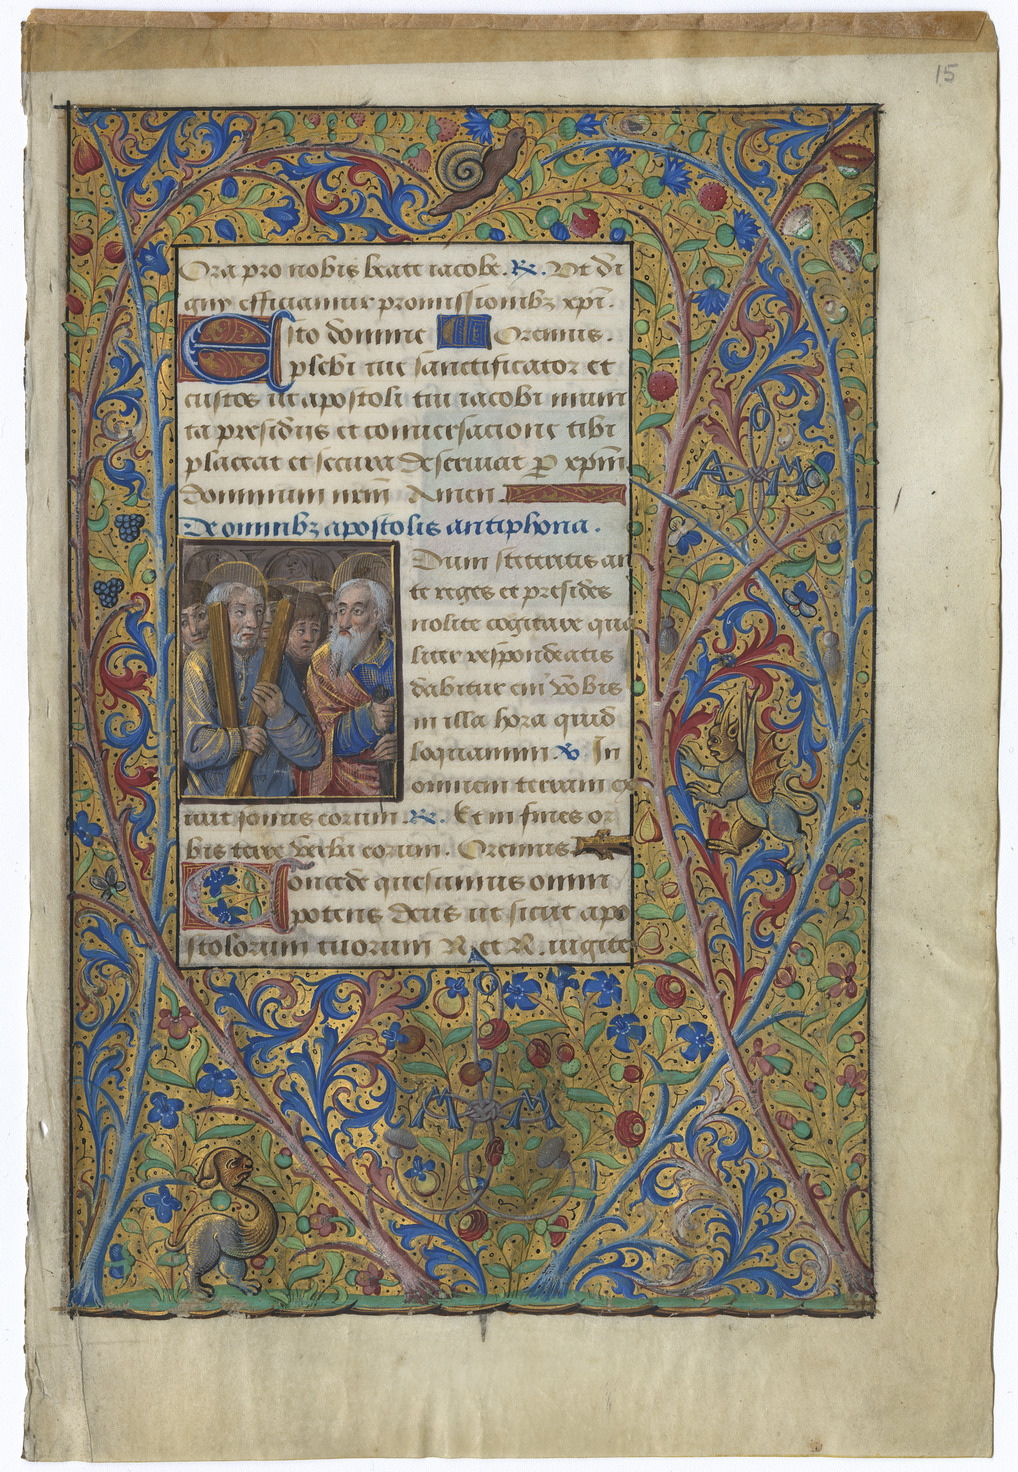 15
Ora pro nobis beate iacobe. ℟. Vt di
gny efficiamur promissionibꝫ xp̄i.
Esto domine Oremus.
plebi tue sanctificator et
custos ut apostoli tui iacobi muni
ta presidiis et conuersacione tibi
placeat et secura deseruiat ꝑ xp̄m
dominum nr̄m Amen
De omnibꝫ apostolis antiphona.
Dum steteritis an
te reges et presides
nolite cogitare qua
liter respondeatis
dabitur eni͂ vobis
in illa hora quid
loquamini ℣. In
omnem terram ex
iuit sonus eorum. ℟. Et in fines or
bis terre verba eorum. Oremus
Concede quesumus omni
potens deus ut sicut apo
stolorum tuorum N. et N. iugite
A M
M M